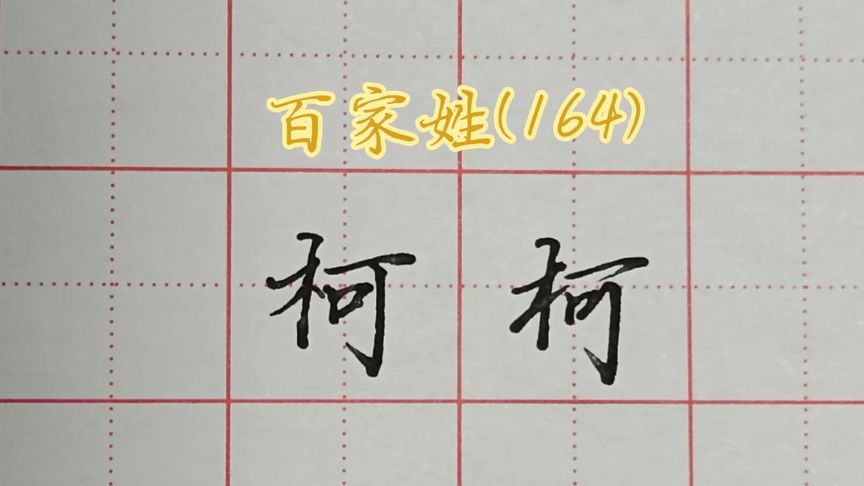 百家姓(164)
柯 柯